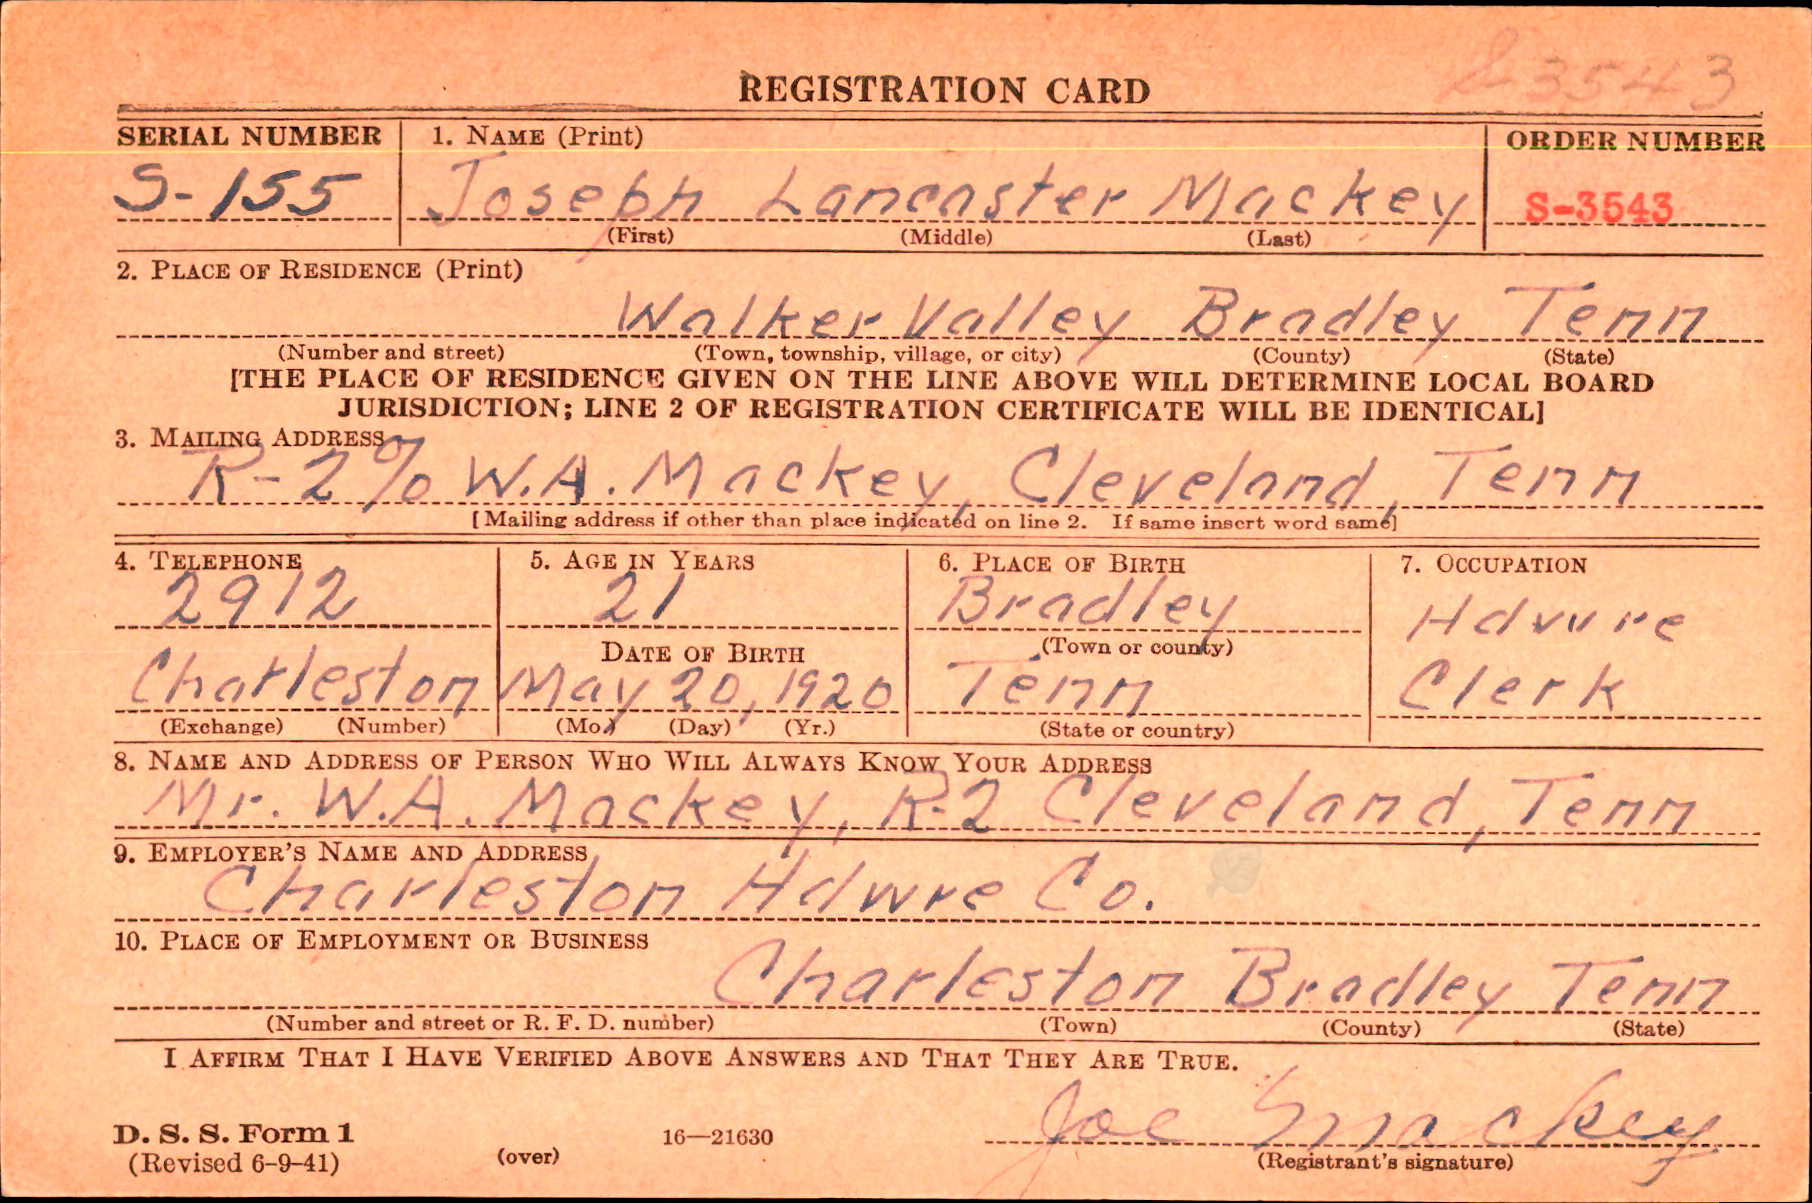 S 3543
REGISTRATION CARD
SERIAL NUMBER 1. NAME (Print) ORDER NUMBER
S-155 Joseph Lancaster Mackey S-3543
(First) (Middle) (Last)
2. PLACE OF RESIDENCE (Print)
Walker Valley Bradley Tenn
(Number and street) (Town, township, village, or city) (County) (State)
[THE PLACE OF RESIDENCE GIVEN ON THE LINE ABOVE WILL DETERMINE LOCAL BOARD
JURISDICTION; LINE 2 OF REGISTRATION CERTIFICATE WILL BE IDENTICAL]
3. MAILING ADDRESS
R-2 % W.A. Mackey, Cleveland, Tenn
[Mailing address if other than place indicated on line 2. If same insert word same]
4. TELEPHONE 5. AGE IN YEARS 6. PLACE OF BIRTH 7. OCCUPATION
2912 21 Bradley Hdwre
DATE OF BIRTH (Town or county)
Charleston May 20, 1920 Tenn Clerk
(Exchange) (Number) (Mo.) (Day) (Yr.) (State or country)
8. NAME AND ADDRESS OF PERSON WHO WILL ALWAYS KNOW YOUR ADDRESS
Mr. W.A. Mackey, R-2 Cleveland, Tenn
9. EMPLOYER'S NAME AND ADDRESS
Charleston Hdwre Co.
10. PLACE OF EMPLOYMENT OR BUSINESS
Charleston Bradley Tenn
(Number and street or R. F. D. number) (Town) (County) (State)
I AFFIRM THAT I HAVE VERIFIED ABOVE ANSWERS AND THAT THEY ARE TRUE.
Joe Mackey
D. S. S. Form 1
(Revised 6-9-41) (over) 16—21630 (Registrant's signature)